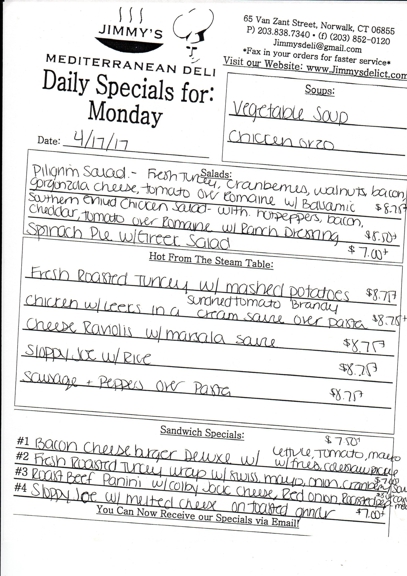 JIMMY'S
MEDITERRANEAN DELI
65 Van Zant Street, Norwalk, CT 06855
P) 203.838.7340 • (f) (203) 852-0120
Jimmysdeli@gmail.com
*Fax in your orders for faster service*
Visit our Website: www.Jimmysdelict.com
Daily Specials for:
Monday
Date: 4/17/17
Soups:
Vegetable Soup
Chicken orzo
Salads:
Pilgrim Salad - Fresh Turkey, cranberries, walnuts, bacon,
gorgonzola cheese, tomato over romaine w/ Balsamic $8.75+
Southern Fried Chicken Salad - with hotpeppers, bacon,
cheddar, tomato over Romaine w/ Ranch Dressing $8.50+
Spinach Pie w/Greek Salad $7.00+
Hot From The Steam Table:
Fresh Roasted Turkey w/ mashed potatoes $8.75+
Chicken w/ Leeks in a sundried tomato Brandy cream sauce over pasta $8.75+
Cheese Raviolis w/ marsala sauce $8.75+
Sloppy Joe w/ Rice $8.75+
Sausage + Peppers over Pasta $8.75+
Sandwich Specials:
$7.50+
#1 Bacon Cheeseburger Deluxe w/ Lettuce, Tomato, mayo
w/fries, coleslaw,
#2 Fresh Roasted Turkey wrap w/ swiss, mayo, onion,
#3 Roast Beef Panini w/ colby Jack cheese, Red onion, Roasted
#4 Sloppy Joe w/ melted cheese on toasted $7.00+
You Can Now Receive our Specials via Email!